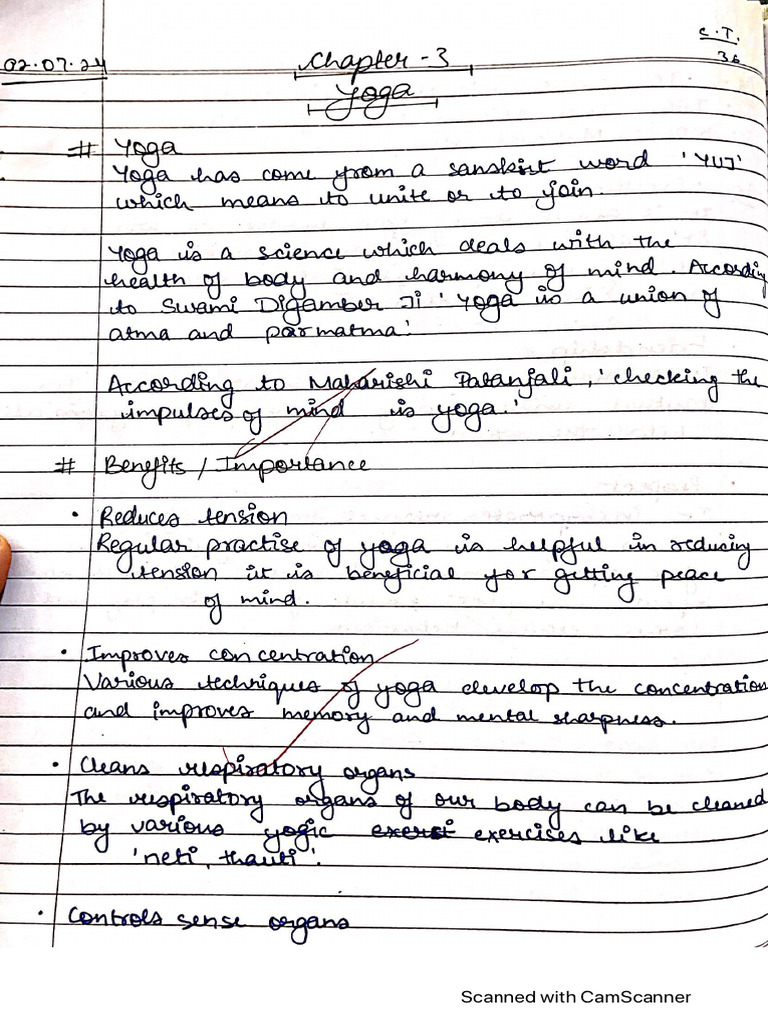 C.T.
36
02.07.24
Chapter - 3
Yoga
# Yoga
Yoga has come from a sanskirt word 'YUJ'
which means to unite or to join.
Yoga is a science which deals with the
health of body and harmony of mind. According
to Swami Digamber Ji 'Yoga is a union of
atma and parmatma'.
According to Maharishi Patanjali, 'checking the
impulses of mind is yoga.'
# Benefits / Importance
• Reduces tension
Regular practise of yoga is helpful in reducing
tension it is beneficial for getting peace
of mind.
• Improves concentration
Various techniques of yoga develop the concentration
and improves memory and mental sharpness.
• Cleans respiratory organs
The respiratory organs of our body can be cleaned
by various yogic exersi exercises like
'neti, thauti'.
• Controls sense organs
Scanned with CamScanner